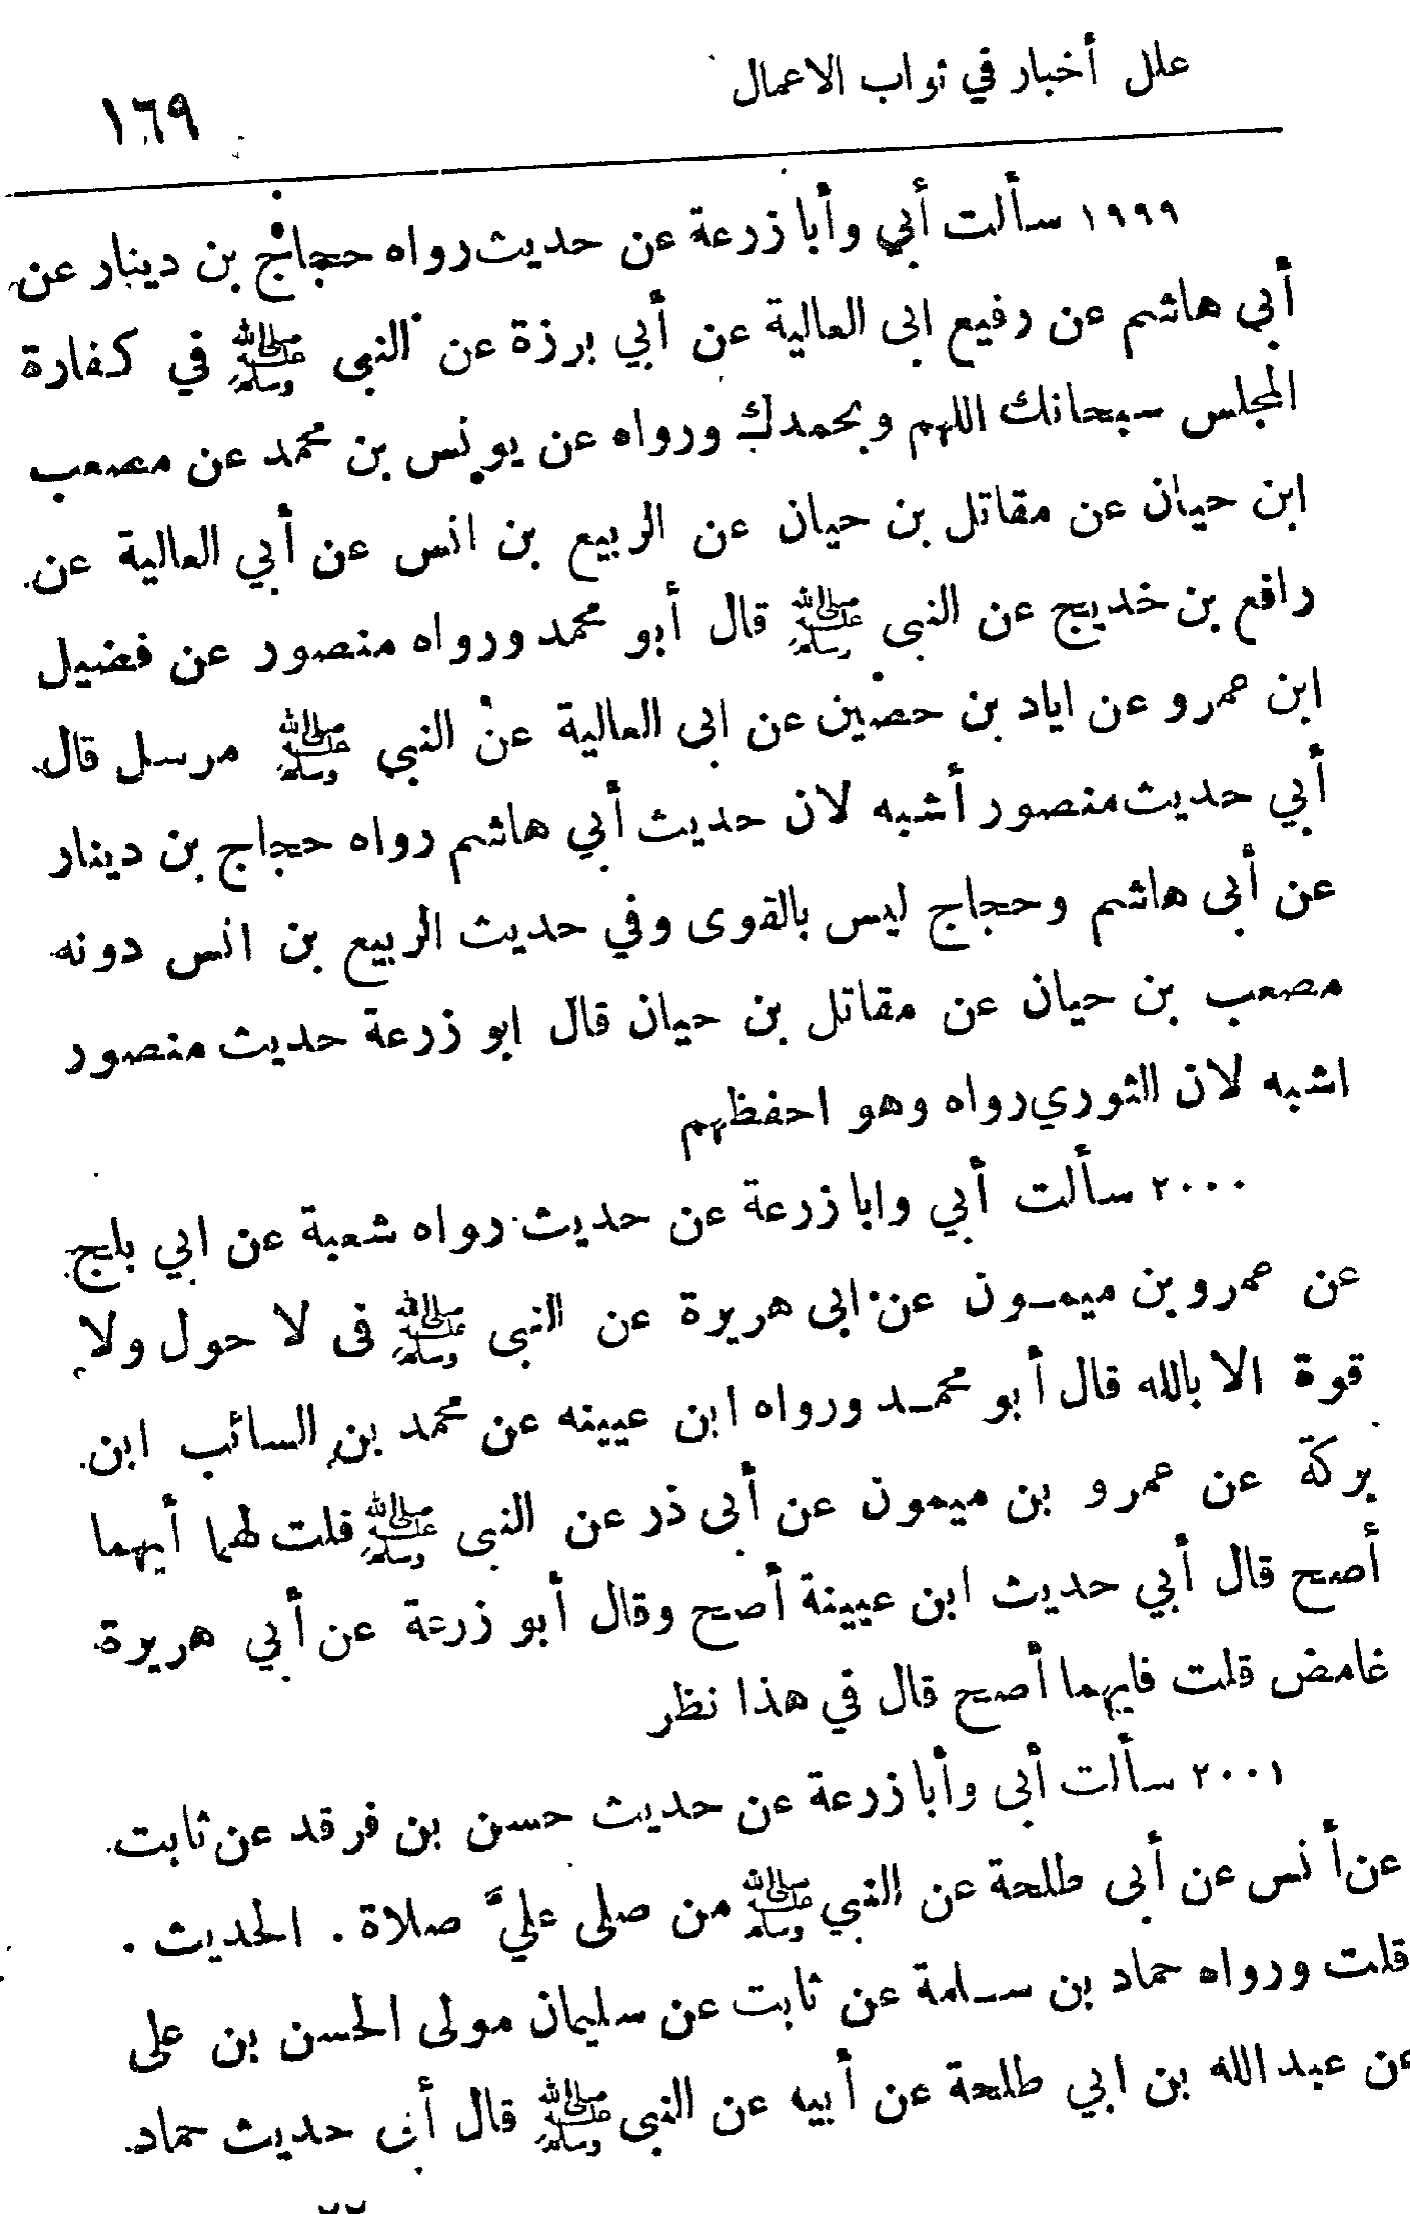 علل أخبار في ثواب الاعمال
١٦٩
١٩٩٩ سألت أبي وأبا زرعة عن حديث رواه حجاج بن دينار عن
أبي هاشم عن رفيع ابى العالية عن أبي برزة عن النبى ﷺ في كفارة
المجلس سبحانك اللهم وبحمدك ورواه عن يونس بن محمد عن مصعب
ابن حيان عن مقاتل بن حيان عن الربيع بن انس عن أبي العالية عن
رافع بن خديج عن النبى ﷺ قال أبو محمد ورواه منصور عن فضيل
ابن عمرو عن اياد بن حصين عن ابى العالية عن النبي ﷺ مرسل قال
أبي حديث منصور أشبه لان حديث أبي هاشم رواه حجاج بن دينار
عن أبى هاشم وحجاج ليس بالقوى وفي حديث الربيع بن انس دونه
مصعب بن حيان عن مقاتل بن حيان قال ابو زرعة حديث منصور
اشبه لان الثوري رواه وهو احفظهم
٢٠٠٠ سألت أبي وابا زرعة عن حديث رواه شعبة عن ابي بلج
عن عمرو بن ميمون عن ابى هريرة عن النبى ﷺ فى لا حول ولا
قوة الا بالله قال أبو محمد ورواه ابن عيينه عن محمد بن السائب ابن
بركة عن عمرو بن ميمون عن أبى ذر عن النبى ﷺ قلت لهما أيهما
أصح قال أبي حديث ابن عيينة أصح وقال أبو زرعة عن أبي هريرة
غامض قلت فايهما أصح قال في هذا نظر
٢٠٠١ سألت أبى وأبا زرعة عن حديث حسن بن فرقد عن ثابت
عن أنس عن أبى طلحة عن النبي ﷺ من صلى عليَّ صلاة . الحديث .
قلت ورواه حماد بن سلمة عن ثابت عن سليمان مولى الحسن بن على
عن عبد الله بن ابي طلحة عن أبيه عن النبى ﷺ قال أبى حديث حماد
٢٢